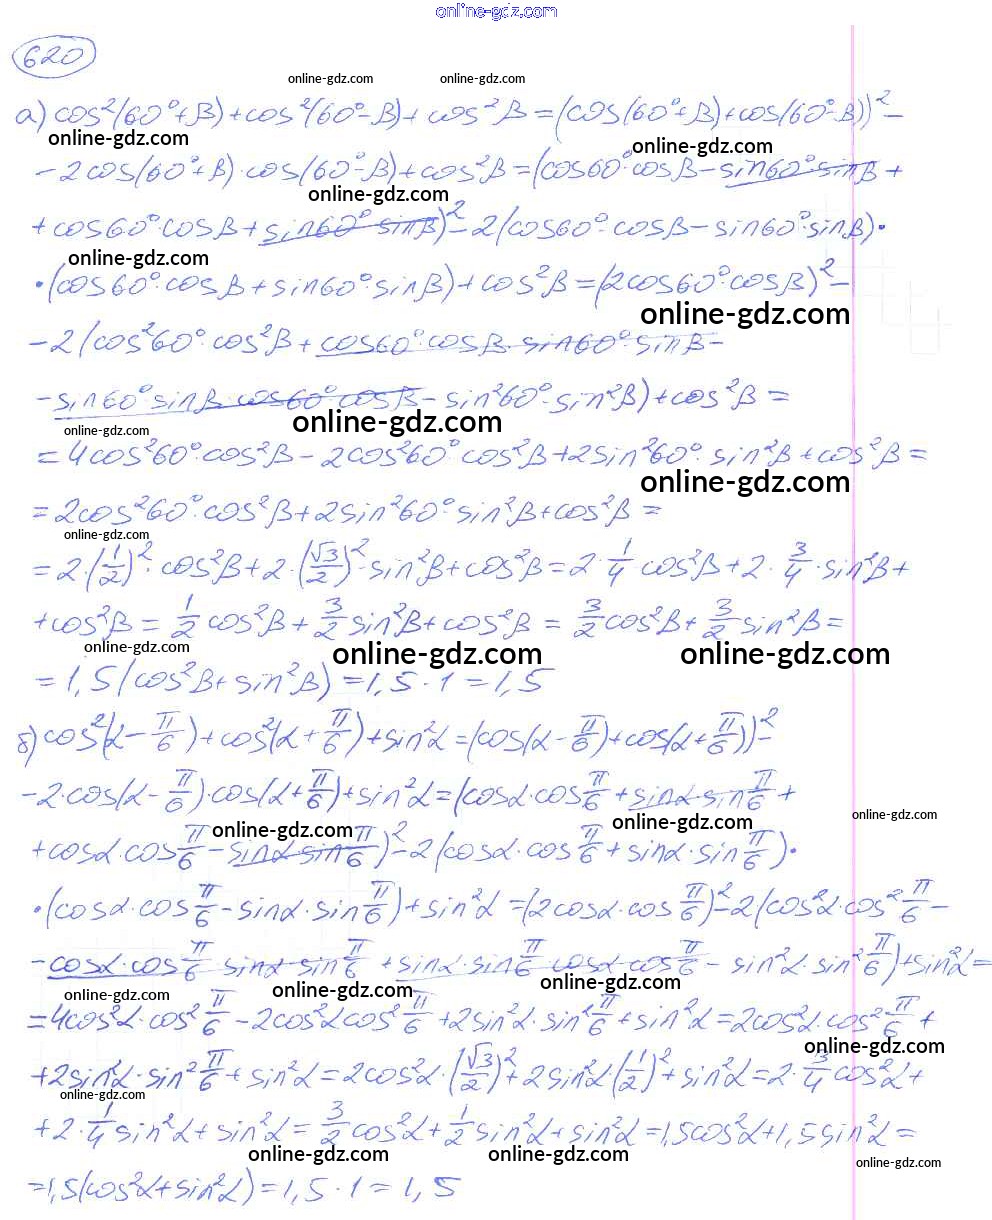 online-gdz.com
620
online-gdz.com online-gdz.com
а) cos²(60°+β)+cos²(60°-β)+cos²β=(cos(60°+β)+cos(60°-β))²-
online-gdz.com online-gdz.com
-2cos(60°+β)·cos(60°-β)+cos²β=(cos60°·cosβ-sin60°·sinβ+
online-gdz.com
+cos60°·cosβ+sin60°·sinβ)²-2(cos60°·cosβ-sin60°·sinβ)·
online-gdz.com
·(cos60°·cosβ+sin60°·sinβ)+cos²β=(2cos60°·cosβ)²-
online-gdz.com
-2(cos²60°·cos²β+cos60°·cosβ·sin60°·sinβ-
-sin60°·sinβ·cos60°·cosβ-sin²60°·sin²β)+cos²β=
online-gdz.com online-gdz.com
=4cos²60°·cos²β-2cos²60°·cos²β+2sin²60°·sin²β+cos²β=
online-gdz.com
=2cos²60°·cos²β+2sin²60°·sin²β+cos²β=
online-gdz.com
=2·(1/2)²·cos²β+2·(√3/2)²·sin²β+cos²β=2·1/4 cos²β+2·3/4·sin²β+
+cos²β=1/2 cos²β+3/2 sin²β+cos²β=3/2 cos²β+3/2 sin²β=
online-gdz.com online-gdz.com online-gdz.com
=1,5(cos²β+sin²β)=1,5·1=1,5
б) cos²(α-π/6)+cos²(α+π/6)+sin²α=(cos(α-π/6)+cos(α+π/6))²-
-2·cos(α-π/6)·cos(α+π/6)+sin²α=(cosα·cosπ/6+sinα·sinπ/6+
online-gdz.com online-gdz.com online-gdz.com
+cosα·cosπ/6-sinα·sinπ/6)²-2(cosα·cosπ/6+sinα·sinπ/6)·
·(cosα·cosπ/6-sinα·sinπ/6)+sin²α=(2cosα·cosπ/6)²-2(cos²α·cos²π/6-
-cosα·cosπ/6·sinα·sinπ/6+sinα·sinπ/6·cosα·cosπ/6-sin²α·sin²π/6)+sin²α=
online-gdz.com online-gdz.com online-gdz.com
=4cos²α·cos²π/6-2cos²αcos²π/6+2sin²α·sin²π/6+sin²α=2cos²α·cos²π/6+
online-gdz.com
+2sin²α·sin²π/6+sin²α=2cos²α·(√3/2)²+2sin²α(1/2)²+sin²α=2·3/4 cos²α+
online-gdz.com
+2·1/4 sin²α+sin²α=3/2 cos²α+1/2 sin²α+sin²α=1,5cos²α+1,5sin²α=
online-gdz.com online-gdz.com online-gdz.com
=1,5(cos²α+sin²α)=1,5·1=1,5